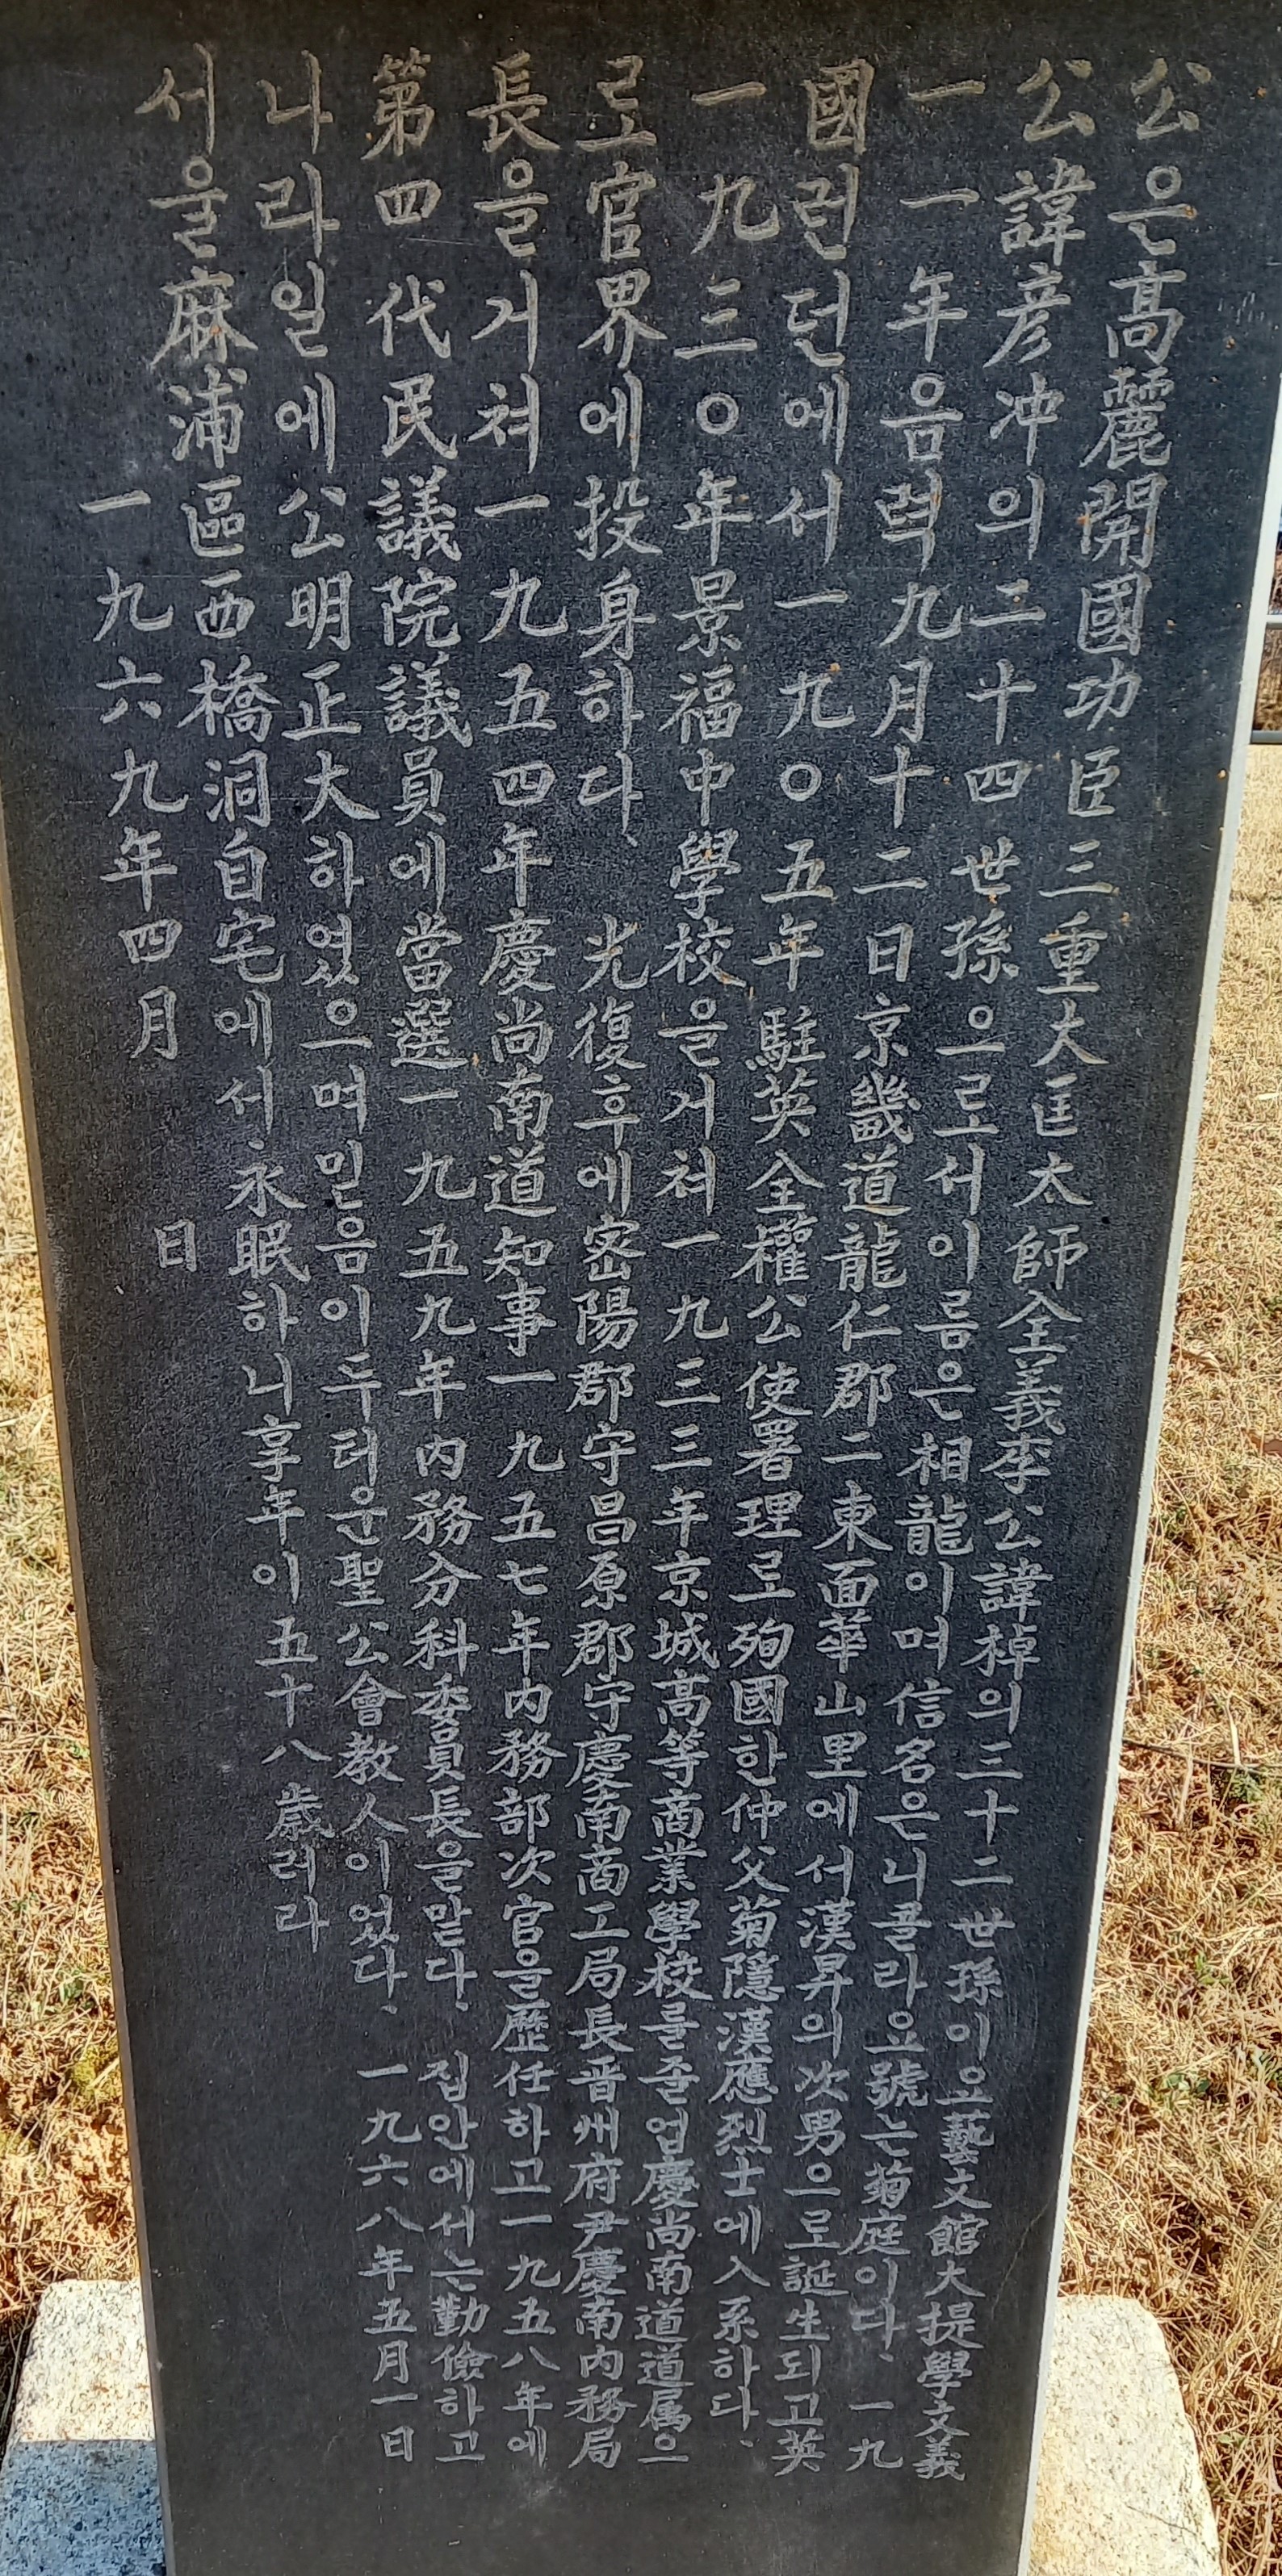 公은高麗開國功臣三重大匡太師全義李公諱棹의三十二世孫이요藝文館大提學文義
公諱彦冲의二十四世孫으로서이름은相龍이며信名은니콜라요號는菊庭이다. 一九
一一年음력九月十二日京畿道龍仁郡二東面華山里에서漢昇의次男으로誕生되고英
國런던에서一九○五年駐英全權公使署理로殉國한仲父菊隱漢應烈士에入系하다.
一九三○年景福中學校을거쳐一九三三年京城高等商業學校를졸업慶尙南道道属으
로官界에投身하다. 光復후에密陽郡守昌原郡守慶南商工局長晋州府尹慶南內務局
長을거쳐一九五四年慶尙南道知事一九五七年內務部次官을歷任하고一九五八年에
第四代民議院議員에當選一九五九年內務分科委員長을맡다. 집안에서는勤儉하고
나라일에公明正大하였으며믿음이두터운聖公會教人이었다. 一九六八年五月一日
서울麻浦區西橋洞自宅에서永眠하니享年이五十八歲러라
一九六九年四月 日